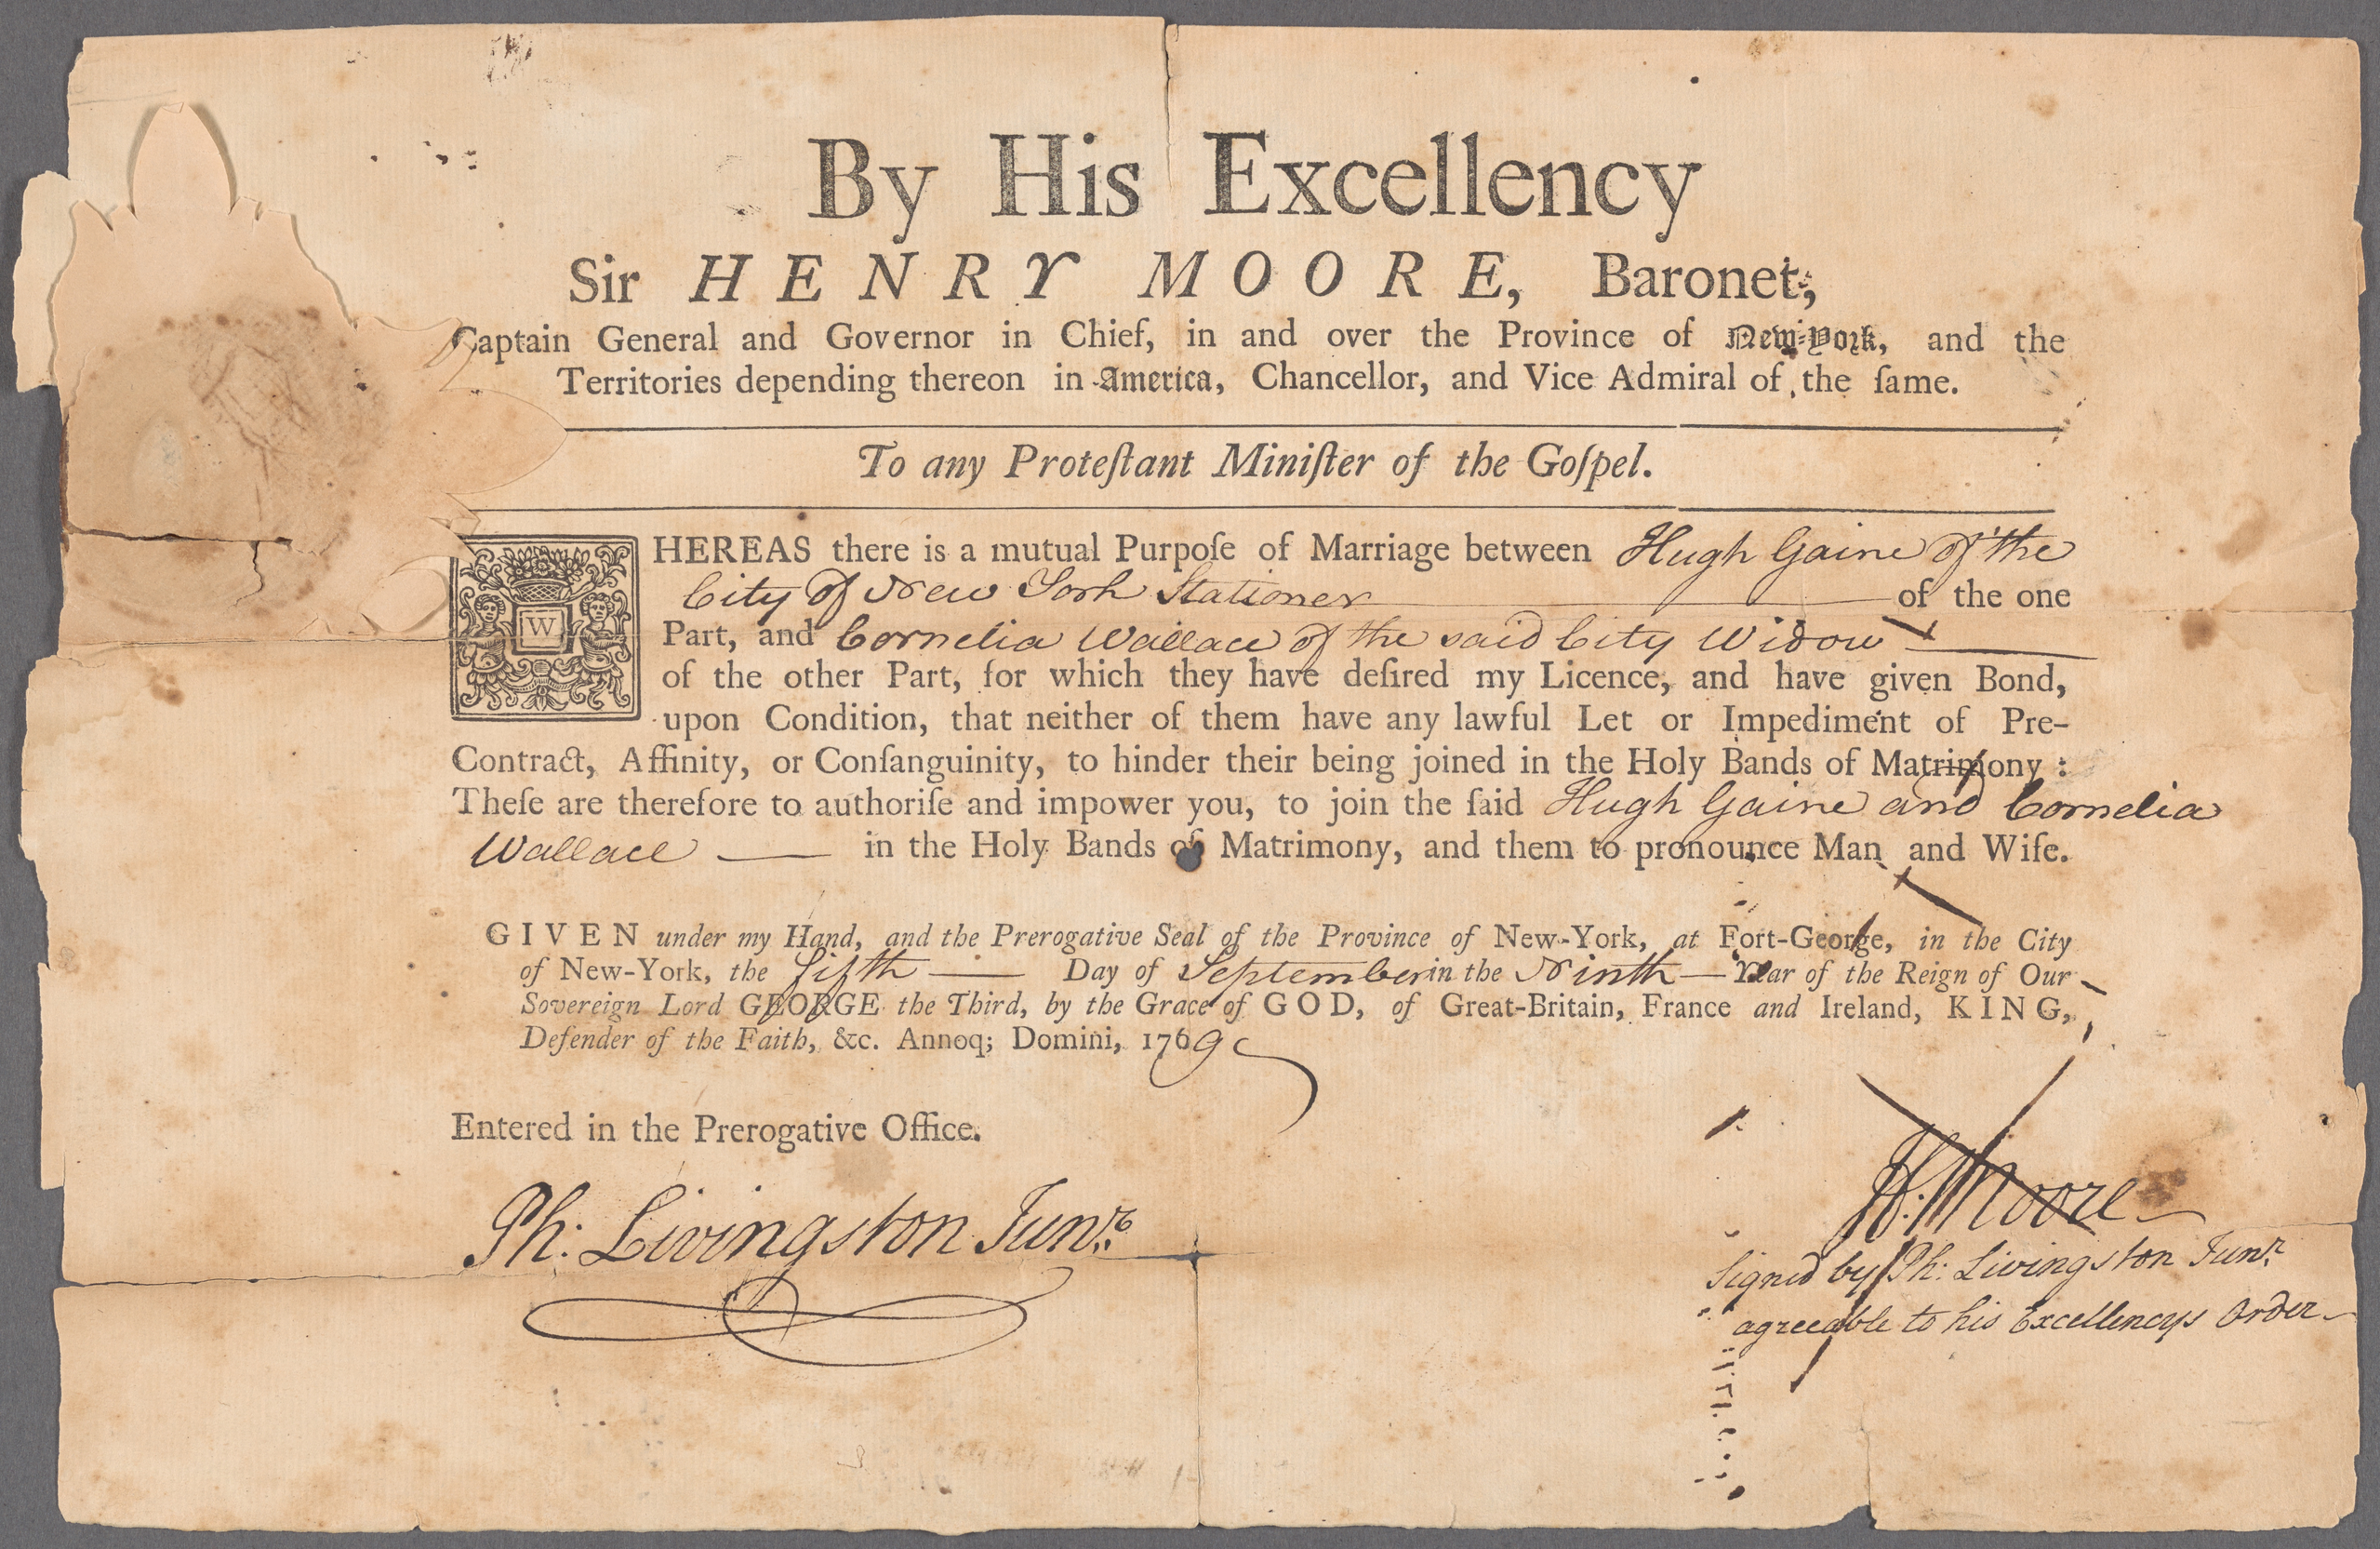 By His Excellency
Sir HENRY MOORE, Baronet,
Captain General and Governor in Chief, in and over the Province of New-York, and the
Territories depending thereon in America, Chancellor, and Vice Admiral of the ſame.
To any Proteſtant Miniſter of the Goſpel.
WHEREAS there is a mutual Purpoſe of Marriage between Hugh Gaine of the
City of New York Stationer of the one
Part, and Cornelia Wallace of the said City Widow
of the other Part, for which they have deſired my Licence, and have given Bond,
upon Condition, that neither of them have any lawful Let or Impediment of Pre-
Contract, Affinity, or Conſanguinity, to hinder their being joined in the Holy Bands of Matrimony :
Theſe are therefore to authoriſe and impower you, to join the ſaid Hugh Gaine and Cornelia
Wallace in the Holy Bands of Matrimony, and them to pronounce Man and Wife.
GIVEN under my Hand, and the Prerogative Seal of the Province of New-York, at Fort-George, in the City
of New-York, the fifth Day of September in the Ninth Year of the Reign of Our
Sovereign Lord GEORGE the Third, by the Grace of GOD, of Great-Britain, France and Ireland, KING,
Defender of the Faith, &c. Annoq; Domini, 1769
Entered in the Prerogative Office.
Ph: Livingston Junr.
H: Moore
Signed by Ph: Livingston Junr.
agreeable to his Excellencys Order